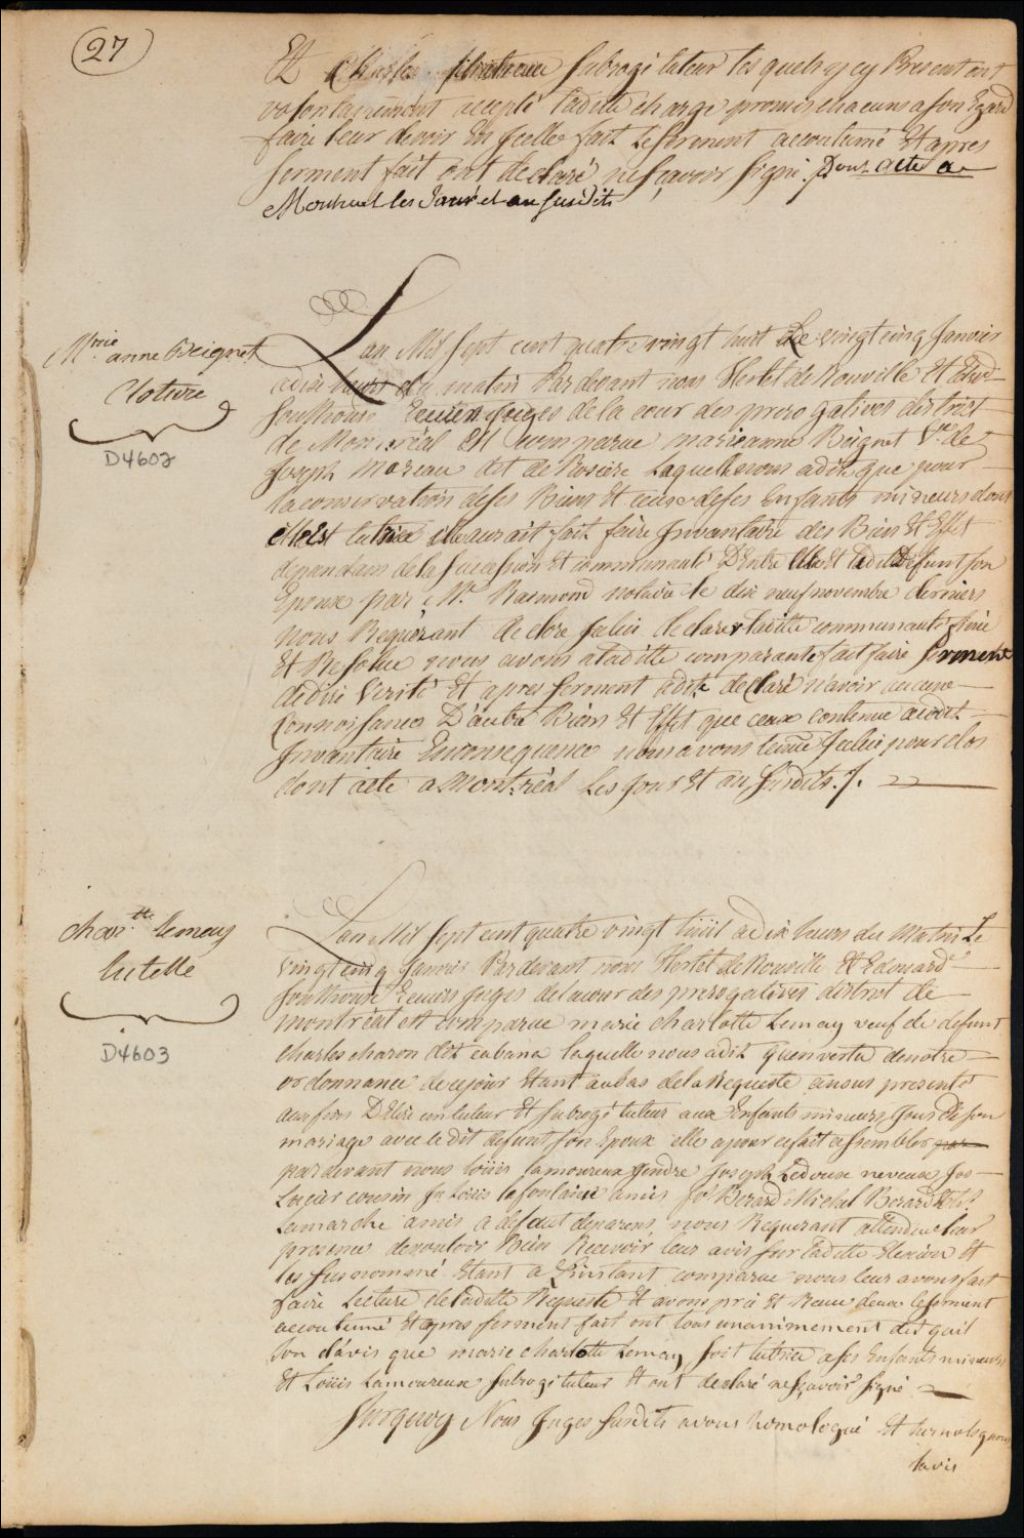 27
Et Charles subrogé tuteur les quels y cy Present ont
volontairement accepté ladite charge promis chacuns a son Egard
faire leur devoir En Jcelle fait le serment accoutumé Et apres
serment fait ont declaré ne sçavoir signé. Dont acte a
Montreal les Jour et an susdits
M.rie anne Beignet
Cloture
D4602
Lan Mil sept cent quatre vingt huit Le vingt cinq Janvier
a dix heures du matin Pardevant nous Hertel de Rouville Et Edwd
Southouse Ecuiers Juges de la cour des prerogatives district
de Montreal Est comparue marieanne Beignet Ve de
Joseph moreau dit de Rosiere Laquelle nous a dit que pour
la conservation de ses Biens Et ceux de ses Enfants mineurs dont
elle est tutrice elle aurait fait faire Jnvantaire des Biens Et Effet
dependans de la succession Et communauté D'Entre Elle Et ledit Defunt son
Epoux par Mr Raimond notaire le dix neuf novembre derniers
nous Requerant de clore Jcelui declarer laditte communauté finie
Et Resolue nous avons a laditte comparante fait faire serment
de dire Verité Et apres serment a dit declaré n'avoir aucune
Connoissance D'autre Bien Et Effet que ceux contenue audit
Jnvantaire Enconsequance nous avons tenue Jcelui pour clos
dont acte a Montreal Les Jour Et an susdits ./.
charltte lemay
tutelle
D4603
Lan Mil sept cent quatre vingt huit a dix heures du Matin Le
vingt cinq Janvier Pardevant nous Hertel de Rouville Et Edouard
Southouse Ecuiers Juges de la cour des prerogatives district de
montreal est comparue marie charlotte Lemay veuf de defunt
Charles charon dit cabana laquelle nous a dit qu'en vertu de notre
ordonnance de ce jour Etant au bas de la Requeste a nous presenté
aux fins D'Elire un tuteur Et subrogé tuteur aux Enfants mineurs Jssus de son
mariage avec le dit defunt son Epoux elle a pour cefait assembler par
pardevant nous Loüis lamoureux gendre Joseph Ledoux neveux Jos
cousin Loüis lafontaine amis Jos Berard Michel Berard Et
Lamarche amis a defaut de parens, nous Requerant attendue leur
presence de vouloir Bien Recevoir leurs avis sur laditte Elexion Et
les susnommé Etant a l'instant comparue nous leur avons fait
faire Lecture de ladite Requeste Et avons pris Et Reçue deux le serment
accoutumé Et apres serment fait ont tous unanimement dit quil
son d'avis que marie charlotte Lemay soit tutrice a ses Enfants mineurs
Et Loüis Lamoureux subrogé tuteur Et ont declaré ne sçavoir signé
Surquoy Nous Juges susdits avons homologué Et homologuons
lavis